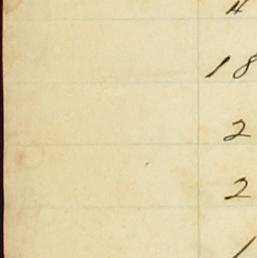 4
18
2
2
1